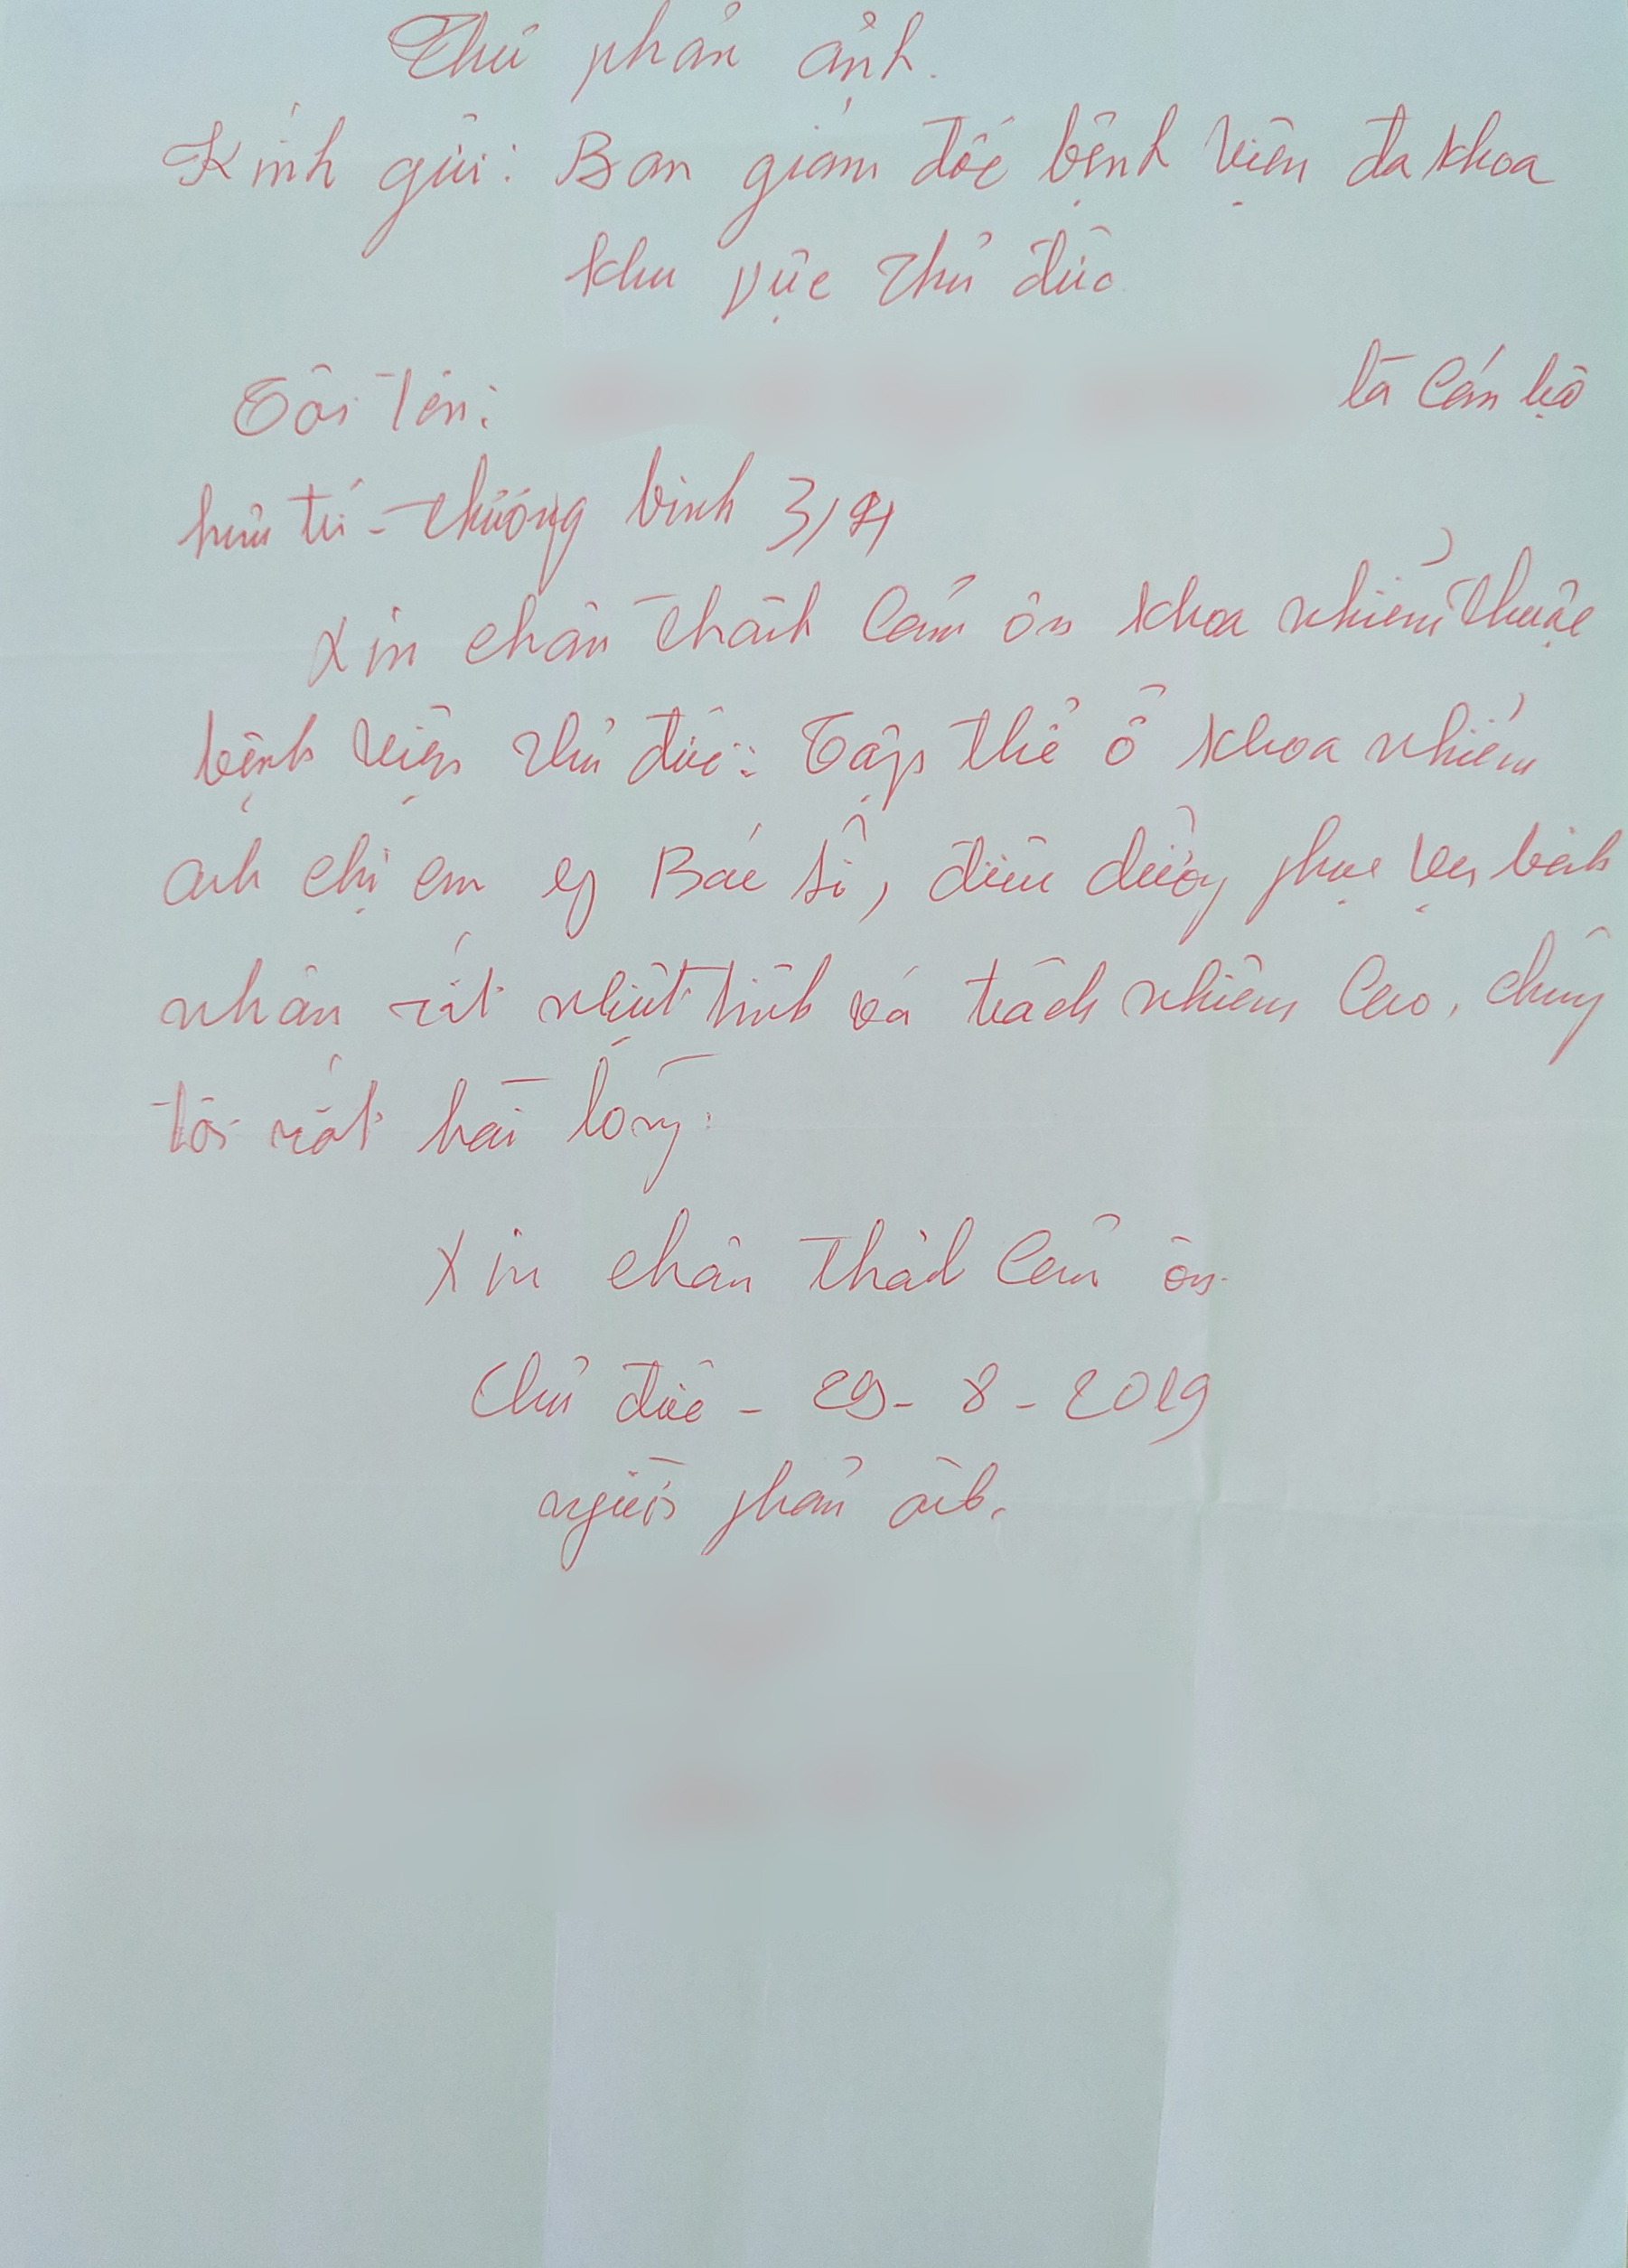 Thư phản ảnh.
Kính gửi: Ban giám đốc bệnh viện đa khoa
khu vực Thủ đức
Tôi tên: là Cán bộ
hưu trí - Thương binh 3/4
Xin chân thành Cảm ơn khoa nhiểm thuộc
bệnh viện Thủ đức: Tập thể ở khoa nhiểm
anh chị em y Bác sĩ, điều dưỡng phục vụ bệnh
nhân rất nhiệt tình và trách nhiệm Cao, chúng
tôi rất hài lòng.
Xin chân thành Cảm ơn.
Thủ đức - 29 - 8 - 2019
người phản ảnh.